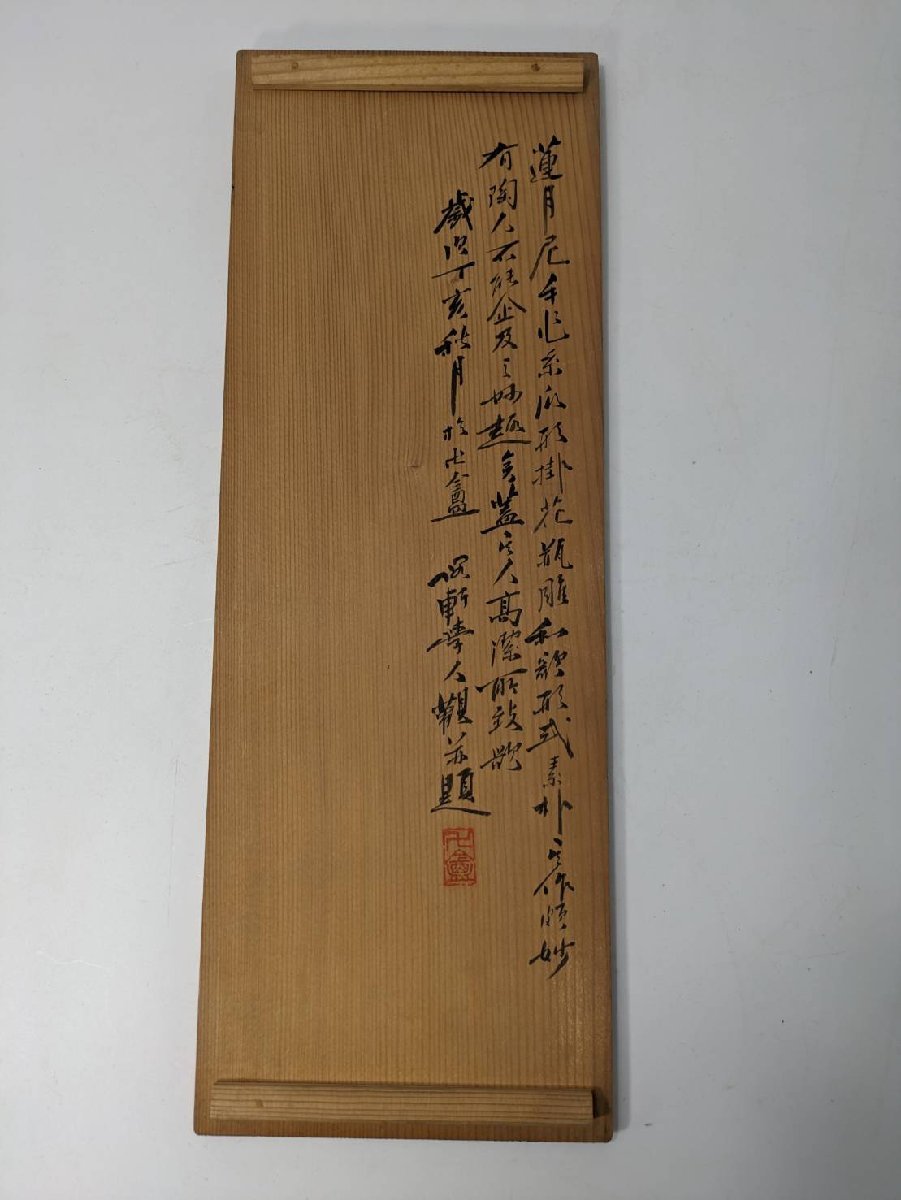 蓮月尼手作糸瓜形掛花瓶雕和歌形式素朴其作頗妙
有陶人不能企及之妙趣矣蓋其人高潔所致歟
歲次丁亥秋月於卍盦 軒學人觀并題
卍盦